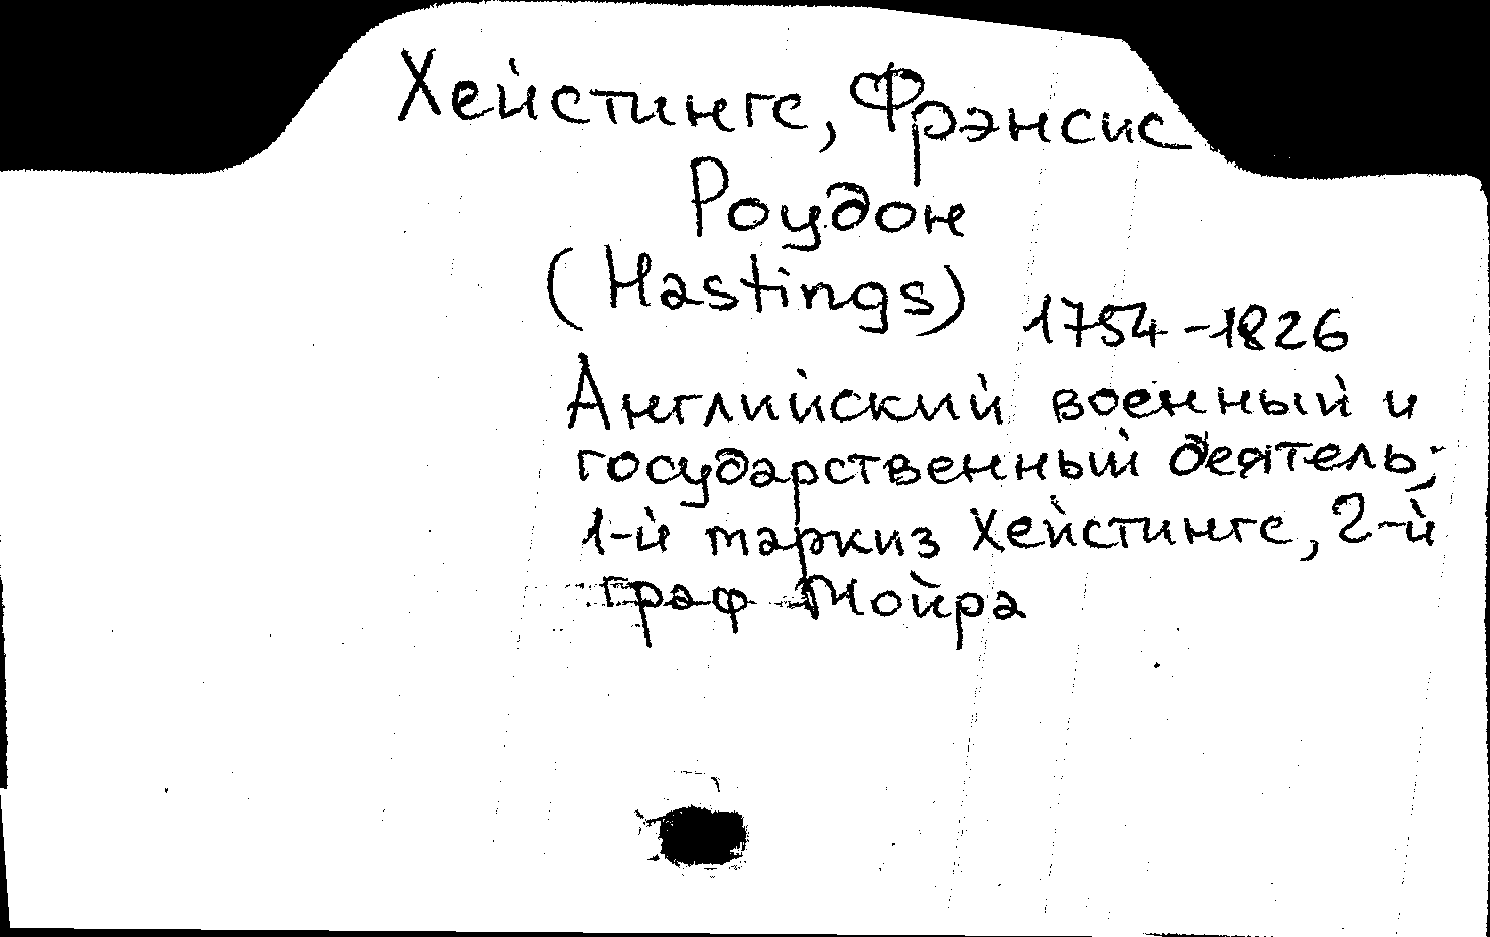 Хейстингс, Фрэнсис
Роудон
(Hastings)
1754-1826
Английский военный и
государственный деятель;
1-й маркиз Хейстингс, 2-й
граф Мойра